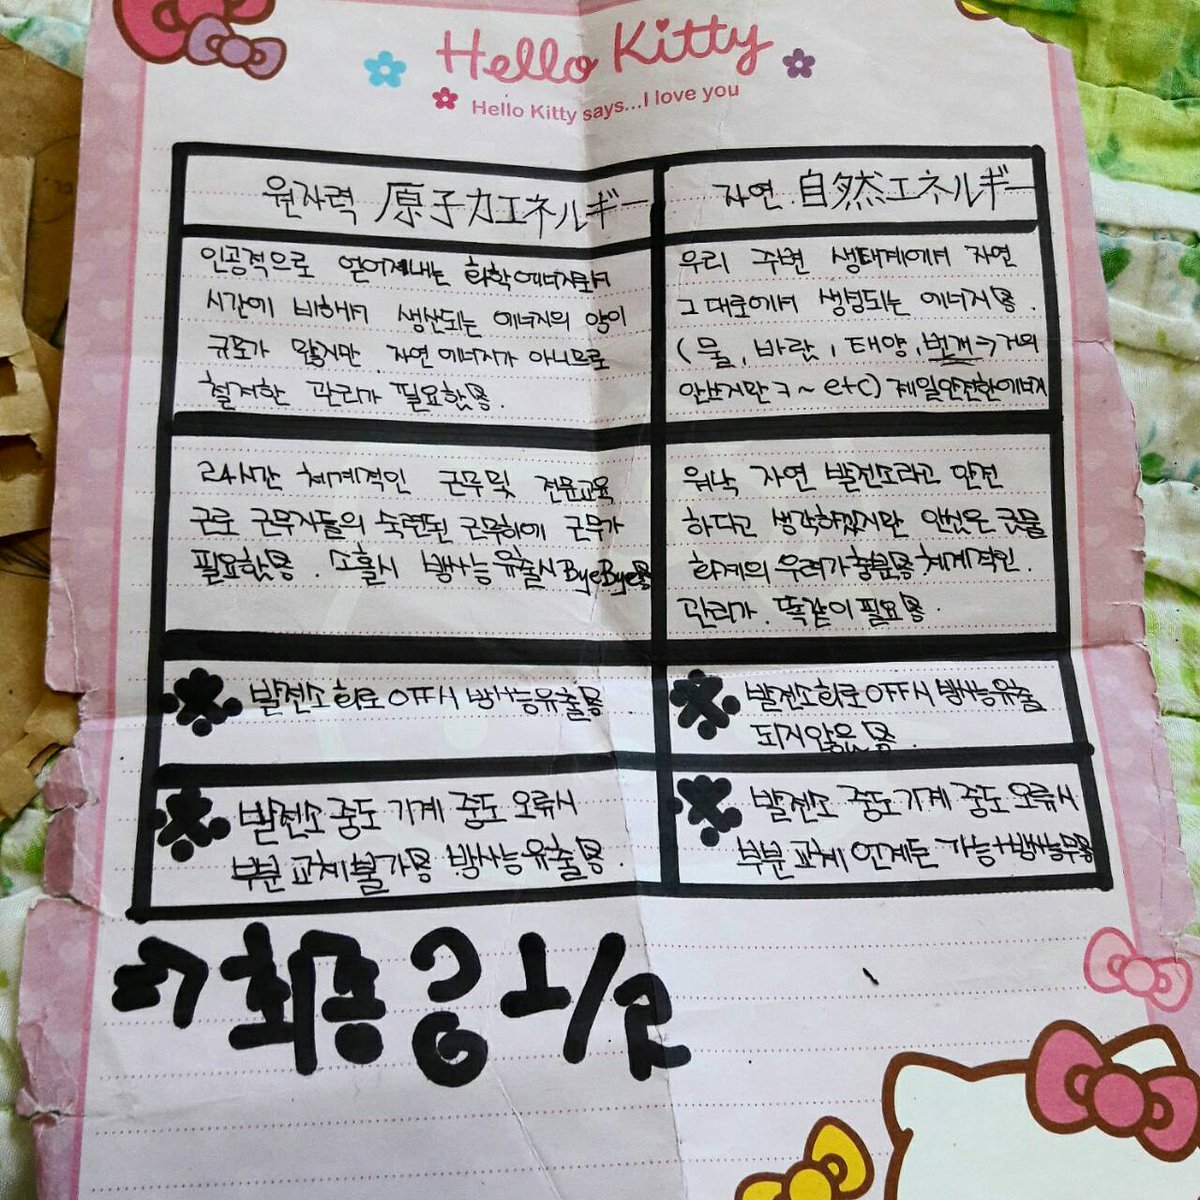 Hello Kitty
Hello Kitty says...I love you
원자력 原子力エネルギー
자연 自然エネルギー
인공적으로 얻어제내는 화학에너지로서
시간에 비해서 생산되는 에너지의 양이
규모가 많지만 자연에너지가 아니므로
철저한 관리가 필요했용.
우리 주변 생태계에서 자연
그대로에서 생성되는 에너지용.
(물, 바람, 태양, 번개ㅋ거의
안쓰지만ㅋ~etc) 제일안전한에너지
24시간 체계적인 근무및 전문교육
근로 근무자들의 숙련된 근무하에 근무가
필요했용. 소홀시 방사능유출시ByeBye용
워낙 자연 발전소라고 안전
하다고 생각하겠지만 안씻은 곳물
화계의 우려가충분용 체계적인
관리가 똑같이필요용.
발전소회로OFF시 방사능유출용
발전소회로OFF시 방사능유출
되지않은용.
발전소 중도 기계 중도 오류시
부분교체불가용 방사능유출용.
발전소 중도기계 중도 오류시
부분교체 언제든 가능+방사능무용